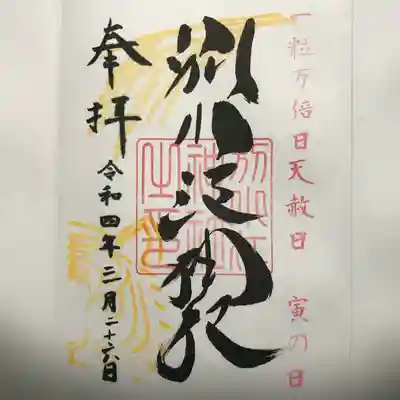 一粒万倍日天赦日 寅の日
別小江神社
奉拝
令和四年三月二十六日